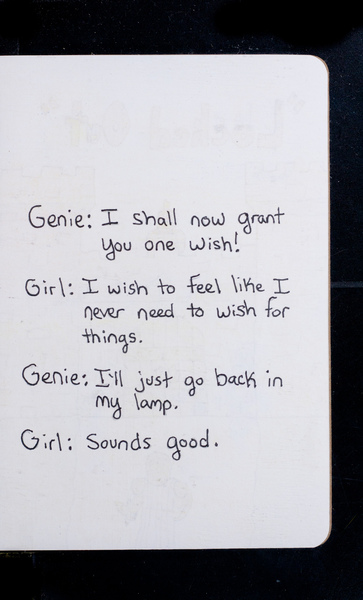 Genie: I shall now grant
you one wish!
Girl: I wish to feel like I
never need to wish for
things.
Genie: I'll just go back in
my lamp.
Girl: Sounds good.